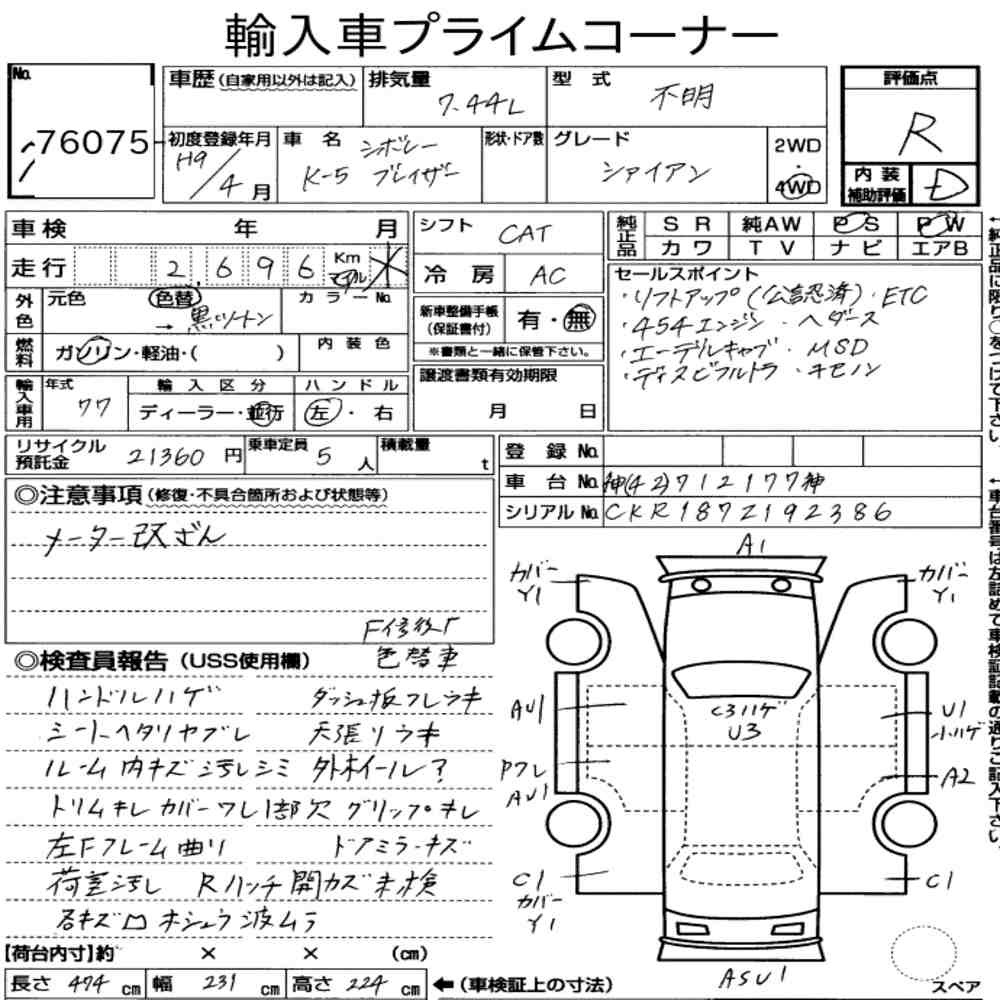 輸入車プライムコーナー
No. 76075
車歴(自家用以外は記入)
排気量 7.44L
型式 不明
評価点 R
初度登録年月 H9/4月
車名 シボレー K-5 ブレイザー
形状・ドア数
グレード シャイアン
2WD・4WD
内装補助評価 D
車検 年 月
走行 2,696 Km マイル *
シフト CAT
冷房 AC
純正品 SR 純AW PS PW
カワ TV ナビ エアB
外色 元色 色替 → 黒ツートン カラーNo.
燃料 ガソリン・軽油・( ) 内装色
新車整備手帳(保証書付) 有・無
※書類と一緒に保管下さい。
セールスポイント
・リフトアップ(公認済)・ETC
・454エンジン ・ヘダース
・エーデルキャブ ・MSD
・ディスビウルトラ ・キセノン
輸入車用 年式 77
輸入区分 ディーラー・並行
ハンドル 左・右
譲渡書類有効期限 月 日
リサイクル預託金 21360円
乗車定員 5人
積載量 t
登録No.
車台No. 神(42)712177神
シリアルNo. CKR1872192386
◎注意事項(修復・不具合箇所および状態等)
メーター改ざん
F修後「
色替車
◎検査員報告(USS使用欄)
ハンドルハゲ ダッシュ板フレウキ
シートヘタリヤブレ 天張リウキ
ルーム内キズ汚レシミ 外ホイール?
トリムキレ カバーワレ1部欠 グリップキレ
左Fフレーム曲リ ドアミラーキズ
荷室汚レ Rハッチ開カズ未検
【荷台内寸】約 × × (cm)
長さ 474 cm 幅 231 cm 高さ 224 cm ←(車検証上の寸法)
A1
カバー Y1
カバー Y1
AU1
C3ハゲ
U3
U1
小ハゲ
Pワレ
AU1
A2
C1
カバー
Y1
C1
ASU1
スペア
←純正品に限り○をつけて下さい。
←車台番号は左詰めで車検証記載の通りご記入下さい。